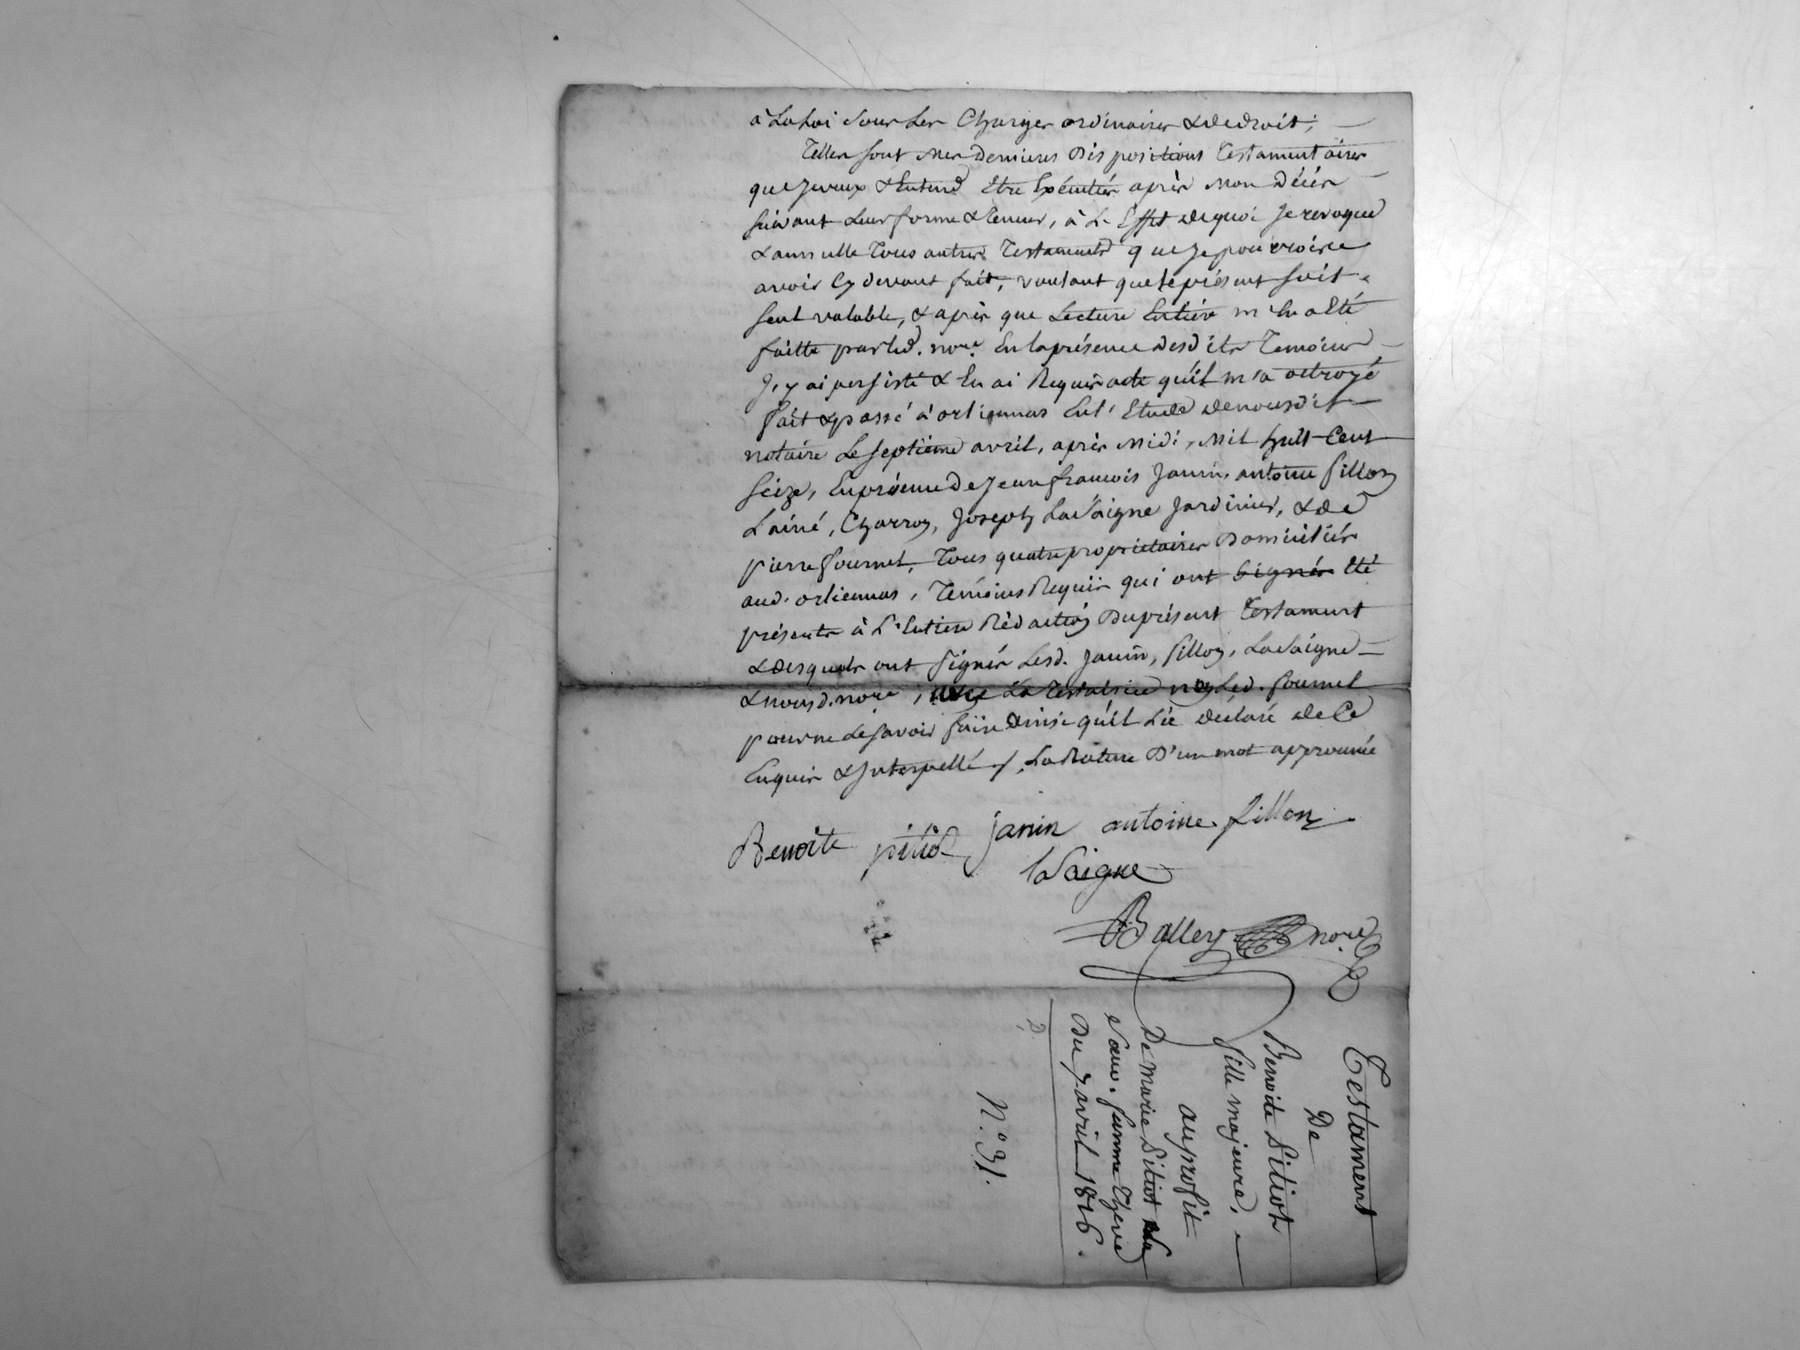 à La Loi sous Les Charges ordinaires & de droit;
Telles sont mes dernieres Dispositions Testamentaires
que je veux & Entend Etre Exécutées après mon Décès
suivant Leur forme & teneur, à L'Effet de quoi Je revoque
& annulle Tous autres Testaments que je pourroire
avoir Cy devant fait, voulant que le présent soit
seul valable, & après que Lecture Entière m'En a Eté
faitte par led. nore. En la présence desdits Temoins
J'y ai persisté & En ai Requis acte qu'il m'a octroyé
fait & passé à ortiennas En l'Etude de nousdit
notaire Le septieme avril, après midi, mil huit Cent
seize, En présence de jean françois janin, antoine fillon
L'ainé, Charron, Joseph LaSaigne Jardinier, & de
pierre fournel, Tous quatre propriétaires Domiciliés
aud. ortiennas, Temoins Requis qui ont signés Eté
présents à L'Entiere Rédaction du présent Testament
& desquels ont signés Lesd. janin, fillon, LaSaigne
& nousd. nore, avec La Testatrice non Led. fournel
pour ne Le savoir faire ainsi qu'il L'a déclaré de Ce
Enquis & Interpellé ./. La Rature D'un mot approuvée
Benoite pitiot janin antoine fillon
laSaigne
Balley nore
Testament
De
Benoite Pitiot
fille majeure,
au profit
De marie Pitiot sa
sœur, femme
Du 7 avril 1816.
N.° 31.